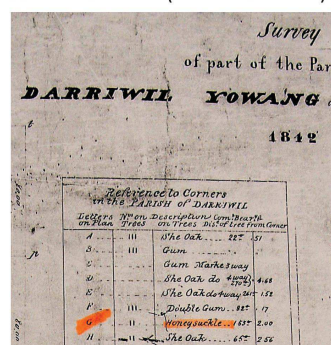 Survey
of part of the Par
DARRIWIL YOWANG
1842
Reference to Corners
in the PARISH of DARRIWIL
Letters on Plan Nos on Trees Description on Trees Com: Bear'g Dis: of tree from Corner
A III She Oak 22° 51
B III Gum
C Gum Marke 3 way
D She Oak do 4 way 270° 4.68
E She Oak do 4 way 261° 1.58
F III Double Gum 82° 17
G II Honeysuckle 163° 2.00
H II She Oak 65° 2 56